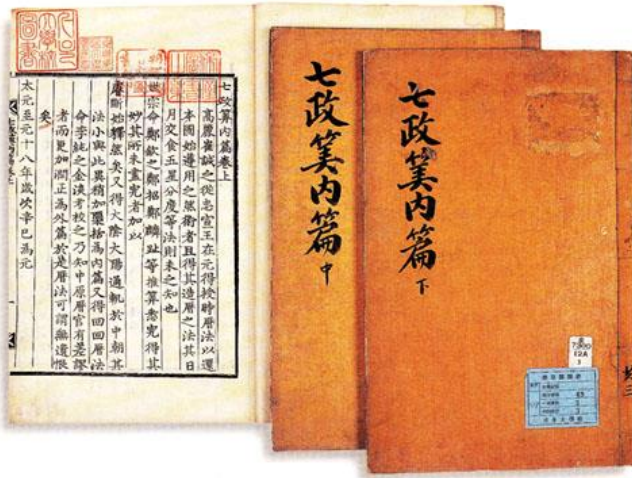 七政筭內篇卷上
高麗崔誠之從忠宣王在元得授時曆法以還
本國始遵用之然術者且得其造曆之法其日
月交食五星分度等法則未之知也
世宗命鄭欽之鄭招鄭麟趾等推算悉究得其
妙其所未盡究者加以
睿斷始釋然矣又得大陰大陽通軌於中朝其
法小與此異稍加檃括爲內篇又得回回曆法
命李純之金淡考校之乃知中原曆官有差謬
者而更加潤正爲外篇於是曆法可謂無遺恨
矣
太元至元十八年歲次辛巳爲元
七政筭内篇 中
七政筭内篇 下
7300
12A